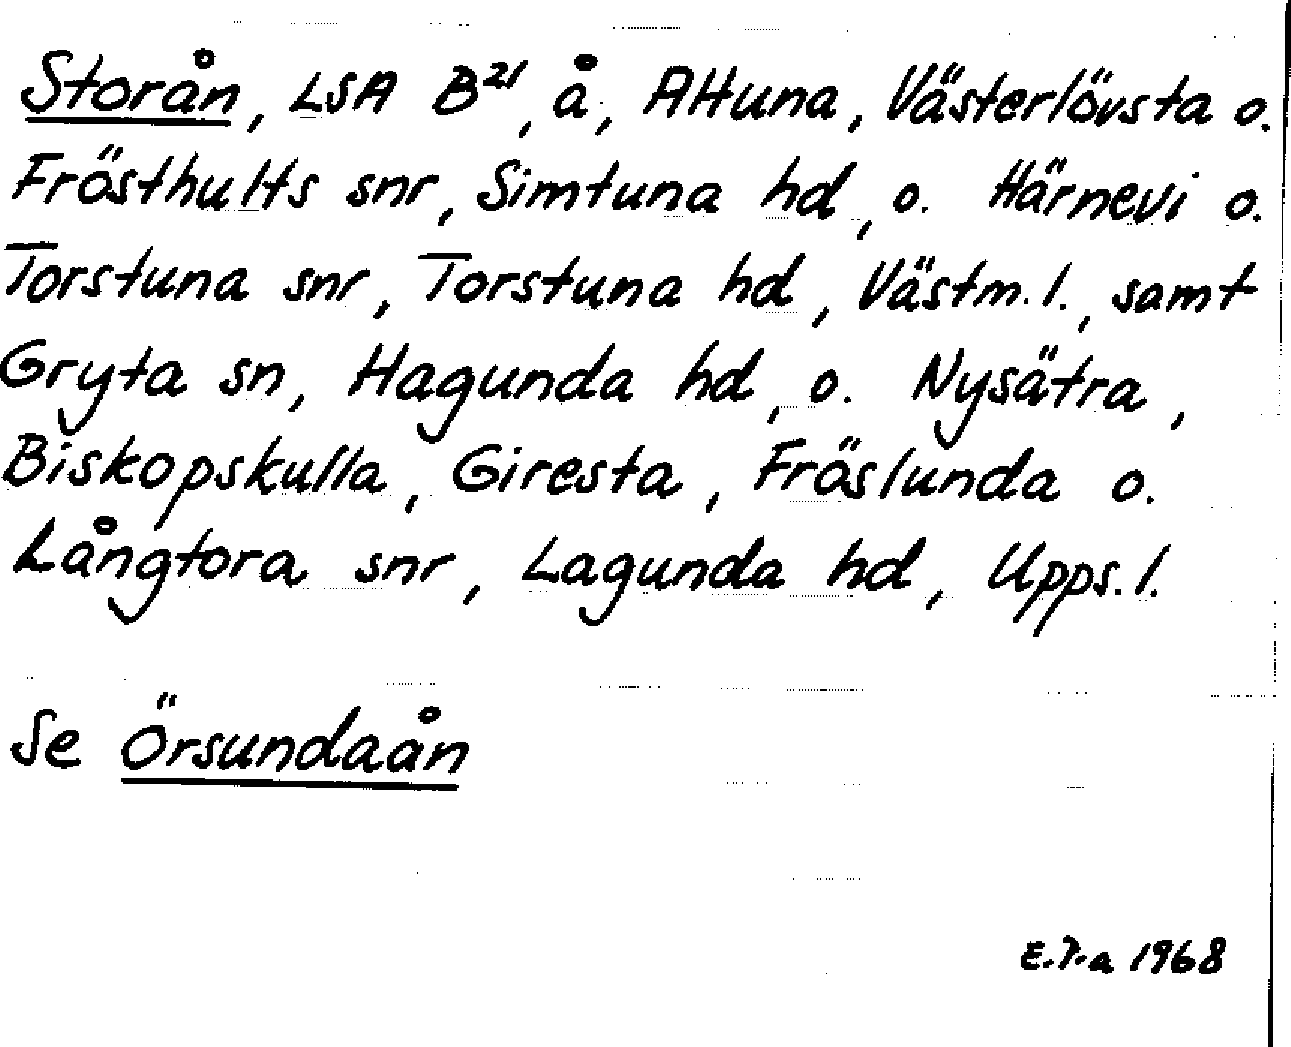 Storån, LSA B²¹, å, Altuna, Västerlövsta o.
Frösthults snr, Simtuna hd, o. Härnevi o.
Torstuna snr, Torstuna hd, Västm. l., samt
Gryta sn, Hagunda hd, o. Nysätra,
Biskopskulla, Giresta, Fröslunda o.
Långtora snr, Lagunda hd, Upps. l.
Se Örsundaån
1968